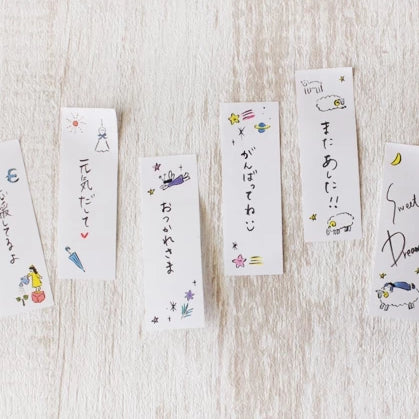 援してるよ
元気だして♥
おつかれさま
がんばってね
またあした!!
Sweet
Dream